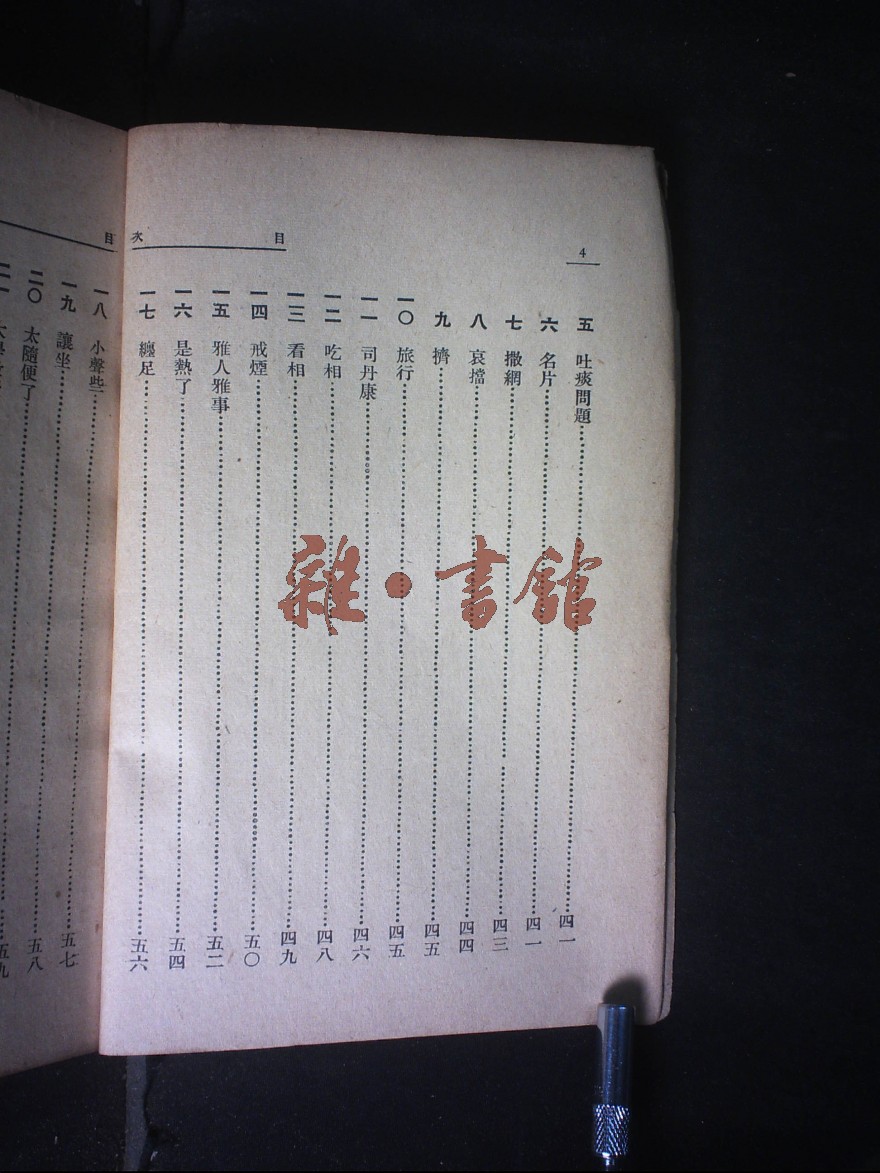 4
目次
五 吐痰問題……四一
六 名片……四一
七 撒網……四三
八 哀擋……四四
九 擠……四五
一〇 旅行……四五
一一 司丹康……四六
一二 吃相……四八
一三 看相……四九
一四 戒煙……五〇
一五 雅人雅事……五二
一六 是熱了……五四
一七 纏足……五六
目
一八 小聲些
一九 讓坐……五七
二〇 太隨便了……五八
五九
雜·書館